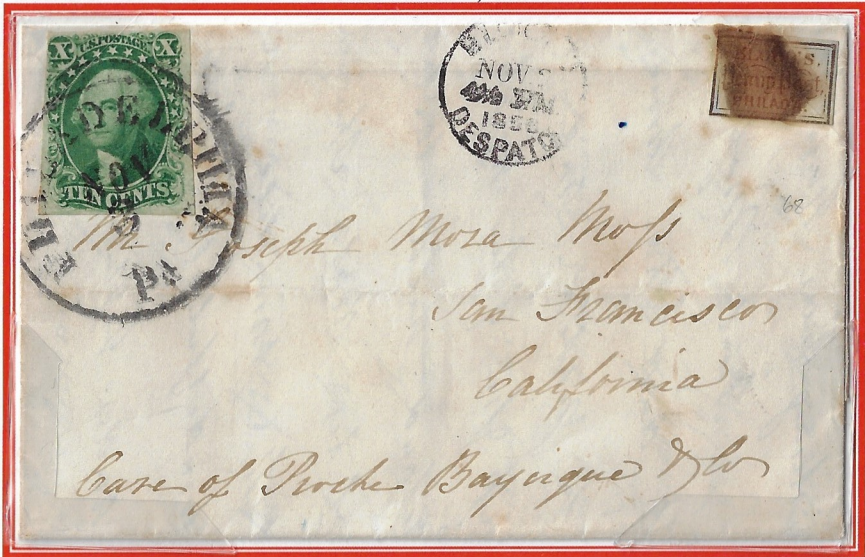 X U.S. POSTAGE X
TEN CENTS
PHILADELPHIA
NOV
Pa
NOV
1856
DESPATCH
PHILADA
68
Mr Joseph Mora Moss
San Francisco
California
Care of Pioche Bayerque & Co